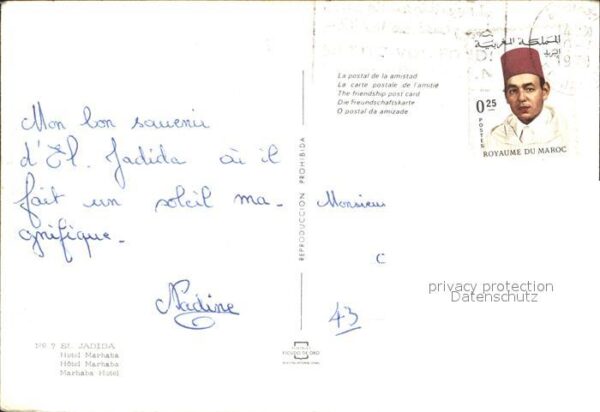 Mon bon souvenir
d'El. Jadida où il
fait un soleil ma-
gnifique.
Nadine
No 7 EL JADIDA
Hotel Marhaba
Hôtel Marhaba
Marhaba Hotel
La postal de la amistad
La carte postale de l'amitié
The friendship post card
Die freundschaftskarte
O postal da amizade
REPRODUCCION PROHIBIDA
ESCUDO DE ORO
المملكة المغربية
0.25
POSTES
ROYAUME DU MAROC
Monsieur
C
privacy protection
Datenschutz
43